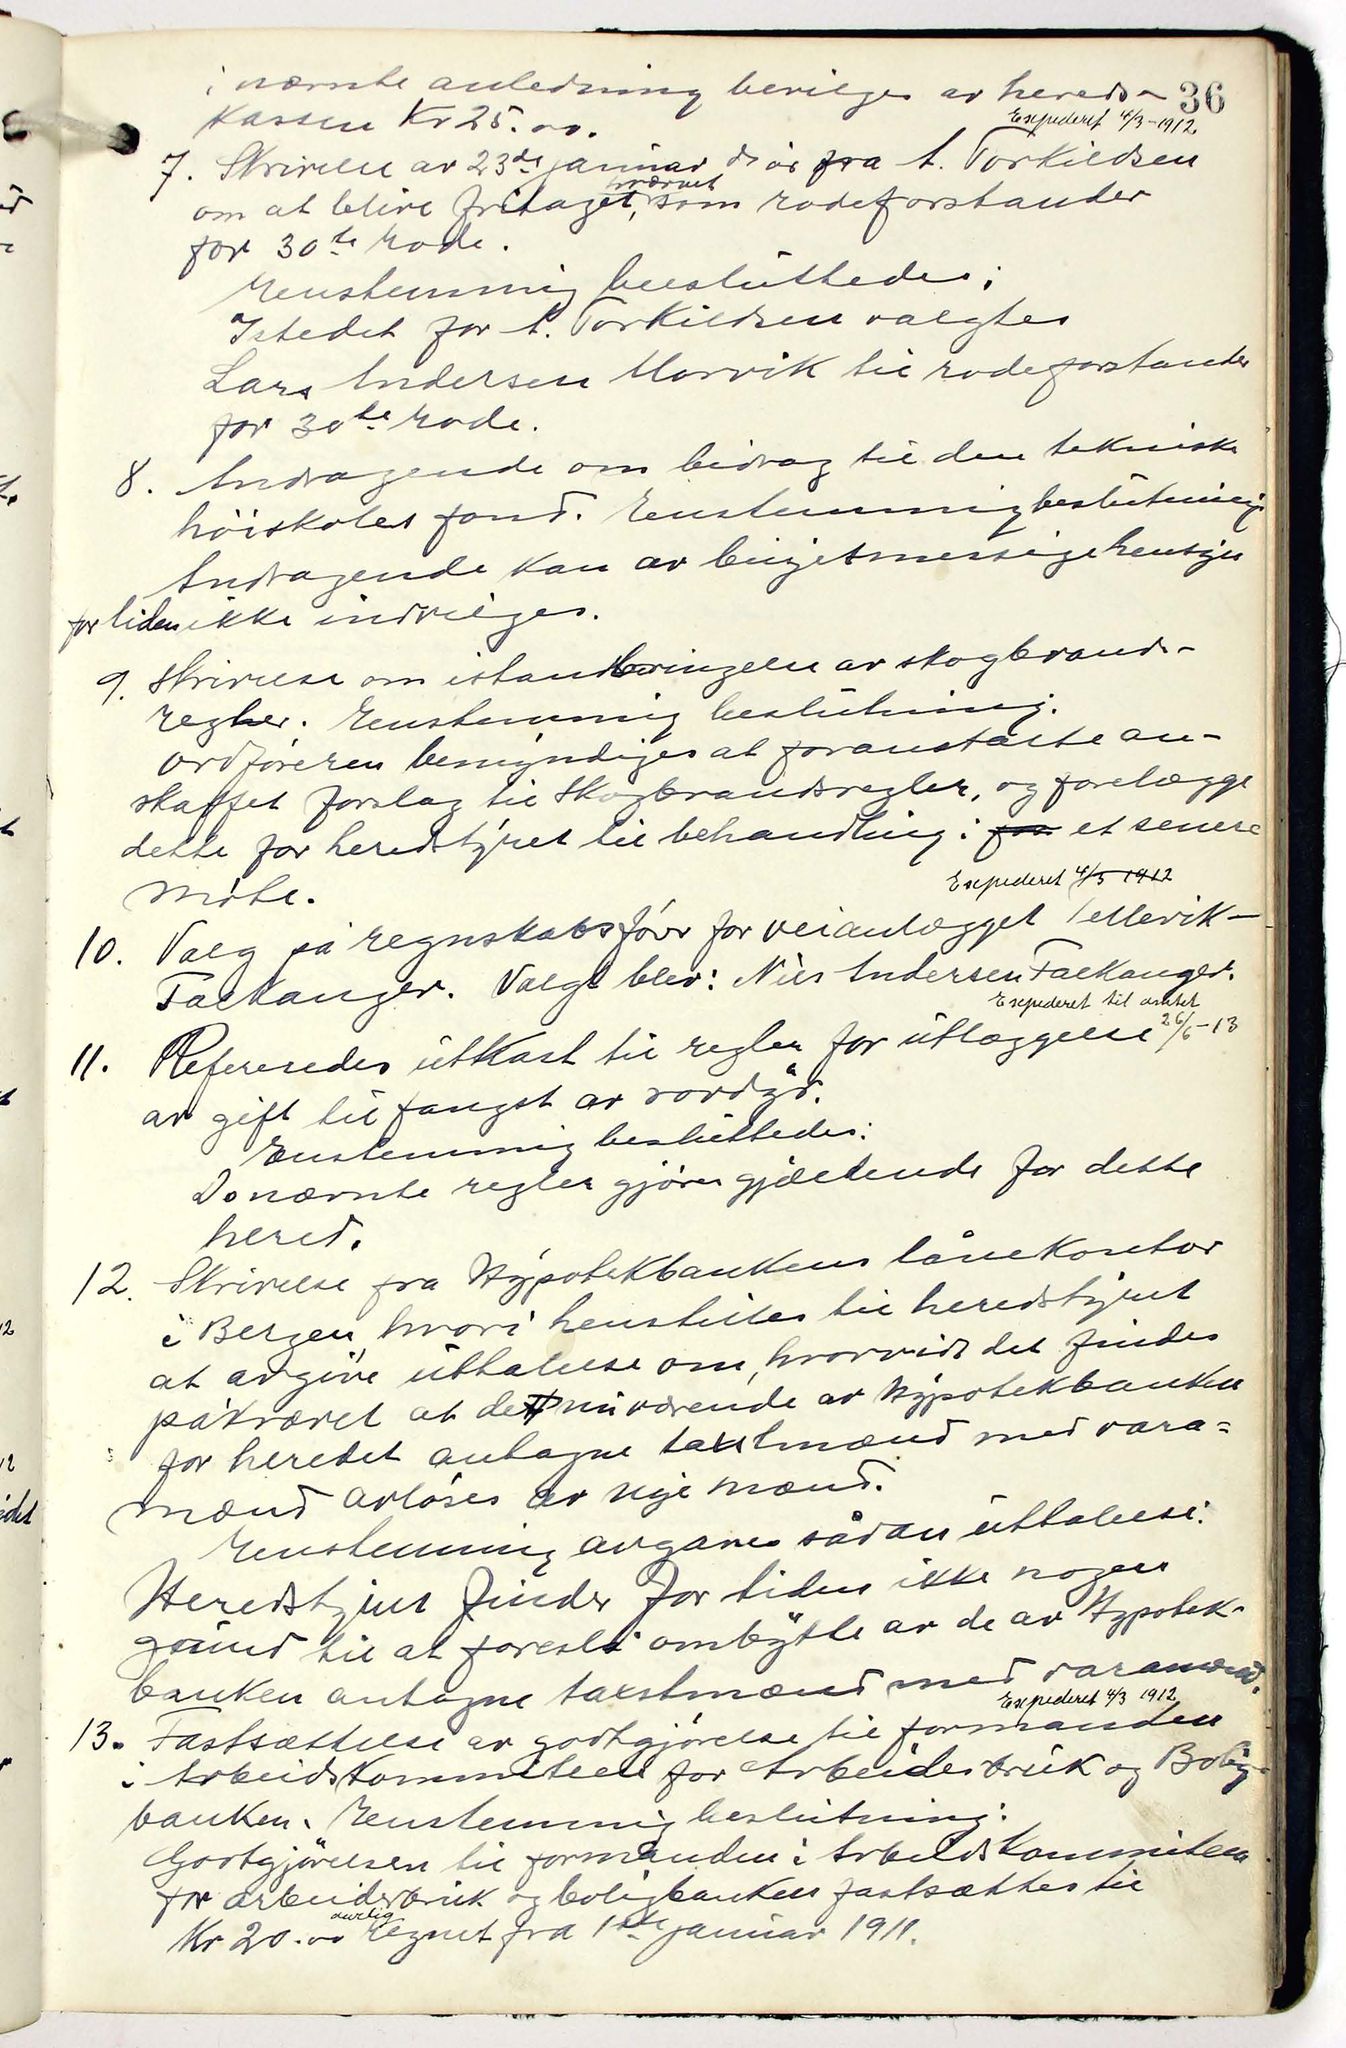 i nævnte anledning bevilges av hereds-
36
kassen Kr 25.00.
Expederet 4/3-1912
7. Skrivelse av 23de januar d år fra A. Torkildsen
om at blive fritaget hvervet som rodeforstander
for 30te rode.
Enstemmig besluttedes;
Istedet for A. Torkildsen valgtes
Lars Andersen Morvik til rodeforstander
for 30te rode.
8. Andragende om bidrag til den tekniske
höiskoles fond. Enstemmig beslutning:
Andragende kan av budgetmessige hensyn
for tiden ikke indvilges.
9. Skrivelse om istandbringelse av skogbrands-
regler. Enstemmig beslutning.
Ordföreren bemyndiges at foranstalte an-
skaffet forslag til Skogbrandsregler, og forelægge
dette for heredstyret til behandling i for et senere
möte.
Expederet 4/3 1912
10. Valg på regnskabsförer for veianlægget Tellevik-
Falkanger. Valgt blev: Nils Andersen Falkanger.
Expederet til amtet
26/6-13
11. Refereredes utkast til regler for utlæggelse
av gift til fangst av rovdyr.
Enstemmig besluttedes:
De nævnte regler gjöres gjældende for dette
hered.
12. Skrivelse fra Hypotekbankens lånekontor
i Bergen, hvori henstilles til heredstyret
at avgive uttalelse om, hvorvidt det findes
påkrævet at de nuværende av Hypotekbanken
for heredet antagne taxtmænd med vara=
mænd avlöses av nye mænd.
Enstemmig avgaves sådan uttalelse:
Heredstyret finder for tiden ikke nogen
grund til at foreslå ombytte av de av Hypotek-
banken antagne taxtmænd med varamænd.
Expederet 4/3 1912
13. Fastsættelse av godtgjörelse til formanden
i Arbeidskommiteen for Arbeidesbruk og Bolig-
banken. Enstemmig beslutning:
Godtgjörelsen til formanden i Arbeidskommiteen
for arbeidesbruk og boligbanken fastsættes til
Kr 20.00 aarlig regnet fra 1ste januar 1911.